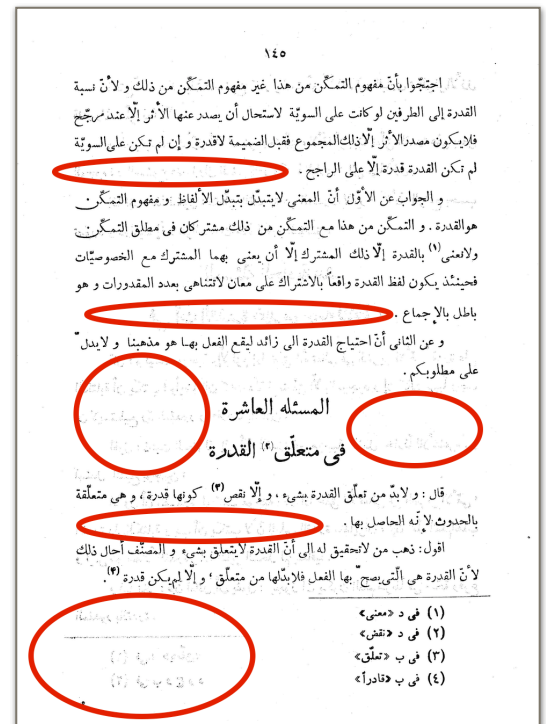 ١٤٥
احتجّوا بأنّ مفهوم التمكّن من هذا غير مفهوم التمكّن من ذلك و لأنّ نسبة
القدرة إلى الطرفين لو كانت على السويّة لاستحال أن يصدر عنها الأثر إلّا عند مرجّح
فلايكون مصدر الأثر إلّا ذلك المجموع فقبل الضميمة لاقدرة و إن لم تكن على السويّة
لم تكن القدرة قدرة إلّا على الراجح .
و الجواب عن الأوّل أنّ المعنى لايتبدّل بتبدّل الألفاظ و مفهوم التمكّن
هو القدرة . و التمكّن من هذا مع التمكّن من ذلك مشتركان فى مطلق التمكّن .
ولانعنى (١) بالقدرة إلّا ذلك المشترك إلّا أن يعنى بهما المشترك مع الخصوصيّات
فحينئذ يكون لفظ القدرة واقعاً بالاشتراك على معان لاتتناهى بعدد المقدورات و هو
باطل بالإجماع .
و عن الثانى أنّ احتياج القدرة الى زائد ليقع الفعل بها هو مذهبنا و لايدلّ
على مطلوبكم .
المسئله العاشرة
فى متعلّق (٢) القدرة
قال : و لابدّ من تعلّق القدرة بشىء ، و إلّا نقص (٣) كونها قدرة ، و هى متعلّقة
بالحدوث لإنّه الحاصل بها .
اقول : ذهب من لاتحقيق له الى أنّ القدرة لايتعلّق بشىء و المصنّف أحال ذلك
لأنّ القدرة هى الّتى يصحّ بها الفعل فلابدّلها من متعلّق ، و إلّا لم يكن قدرة (۴) .
(١) فى د «معنى»
(٢) فى د «نقش»
(٣) فى ب «تعلّق»
(٤) فى ب «قادراً»